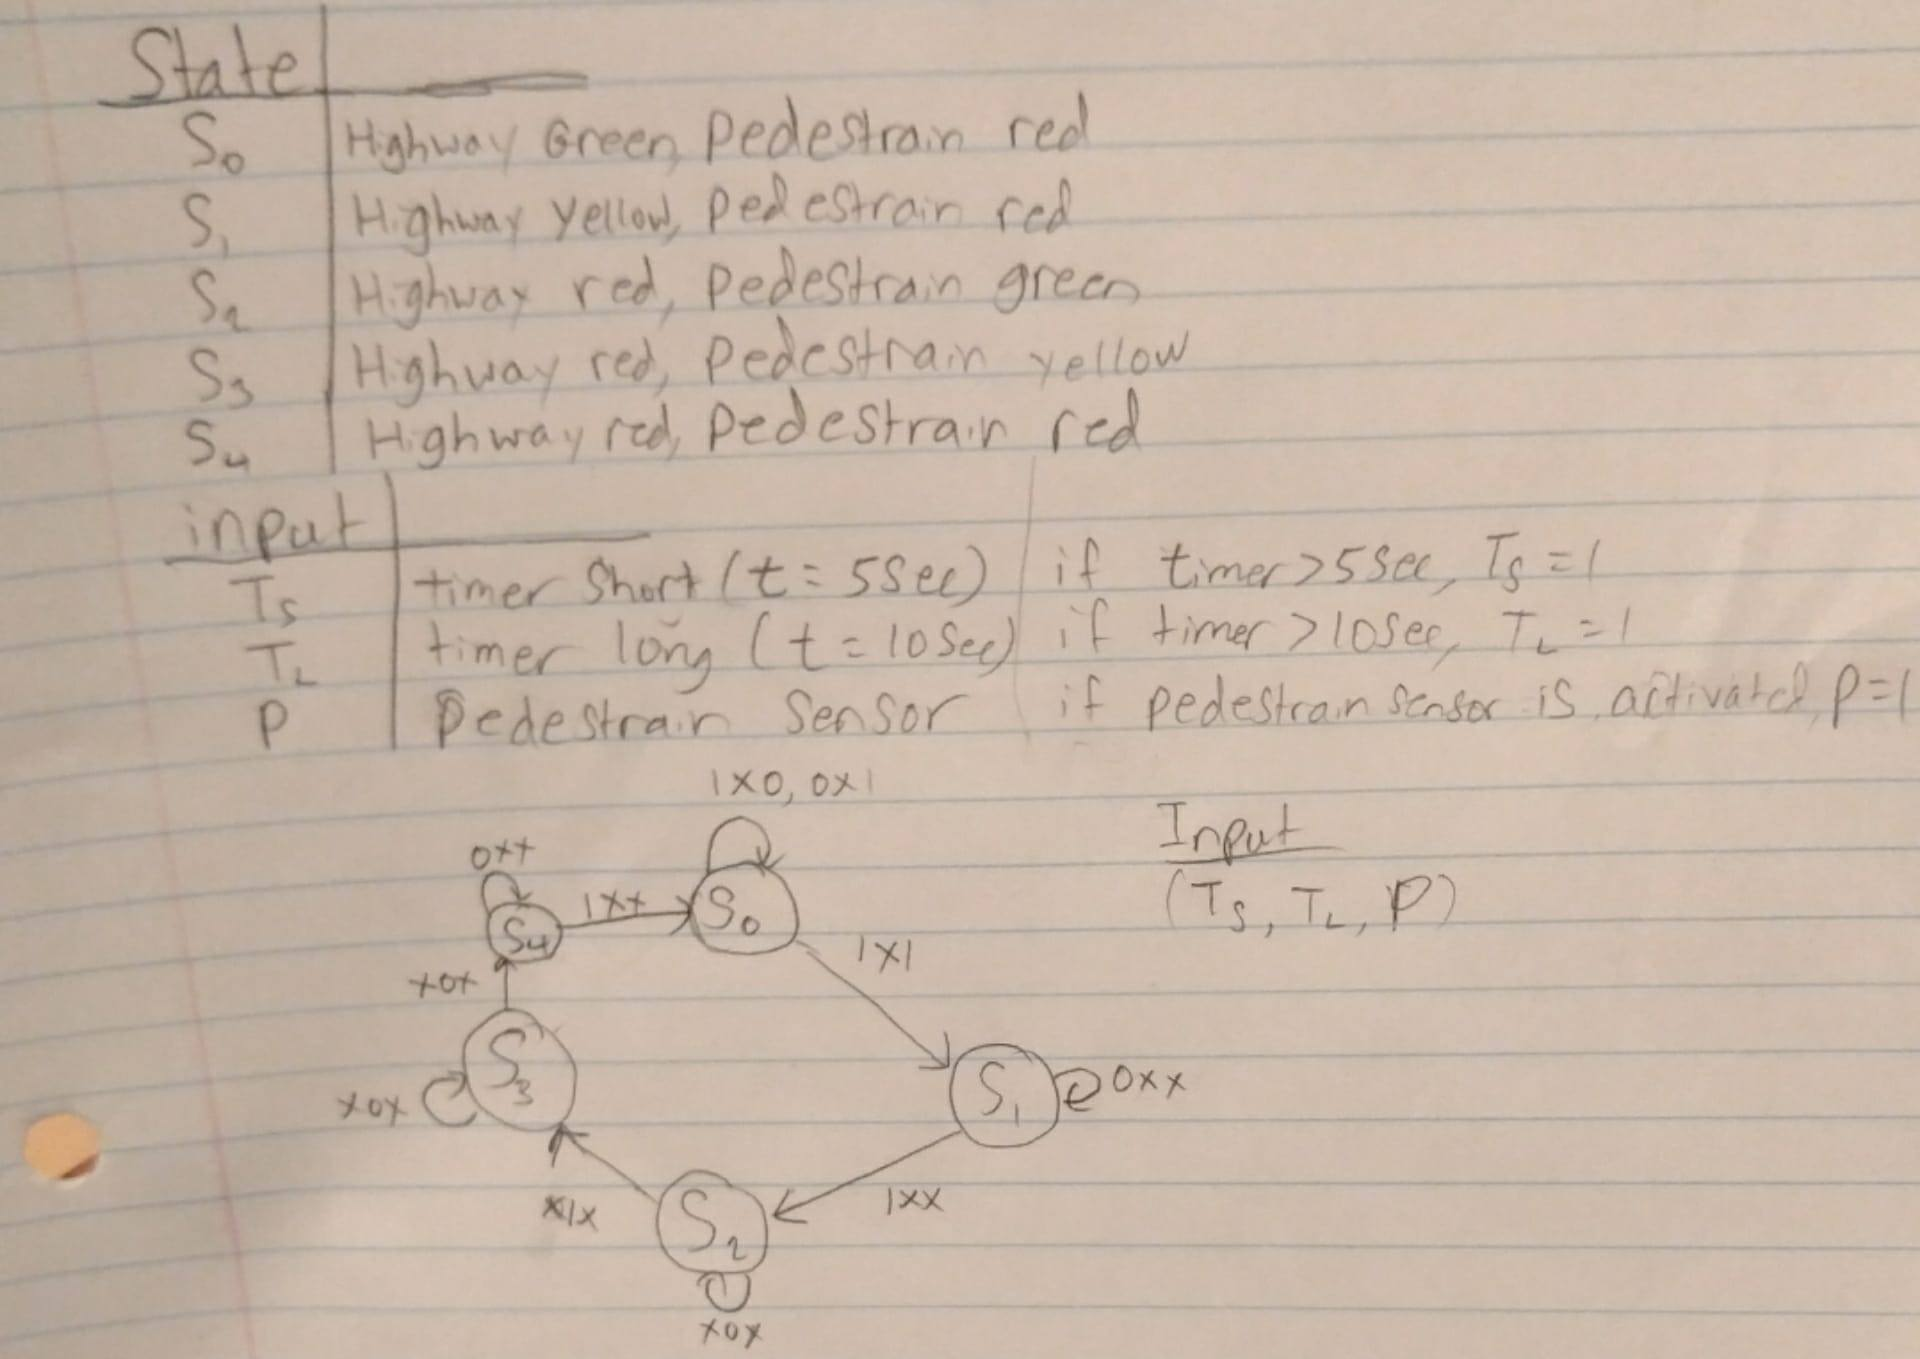 State
S0 Highway Green, Pedestrain red
S1 Highway Yellow, Pedestrain red
S2 Highway red, Pedestrain green
S3 Highway red, Pedestrain yellow
S4 Highway red, Pedestrain red
input
Ts timer Short (t = 5Sec) if timer > 5 Sec, Ts = 1
TL timer long (t = 10Sec) if timer > 10Sec, TL = 1
P Pedestrain Sensor if pedestrain sensor is activated, P = 1
1X0, 0X1
Input
(Ts, TL, P)
0XX
S4
1XX
S0
1X1
X0X
S3
X0X
S1
0XX
X1X
S2
1XX
X0X